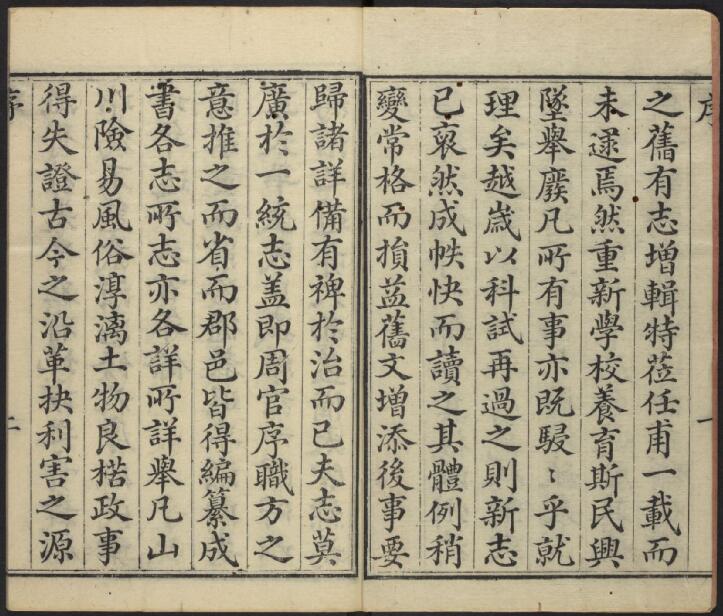 之舊有志增輯特莅任甫一載而
未遂焉然重新學校養育斯民興
墜舉廢凡所有事亦既駸〻乎就
理矣越歲以科試再過之則新志
已裒然成帙快而讀之其體例稍
變常格而損益舊文增添後事要
歸諸詳備有裨於治而已夫志莫
廣於一統志盖即周官序職方之
意推之而省而郡邑皆得編纂成
書各志所志亦各詳所詳舉凡山
川險易風俗淳漓土物良楛政事
得失證古今之沿革抉利害之源
序
一
序
二